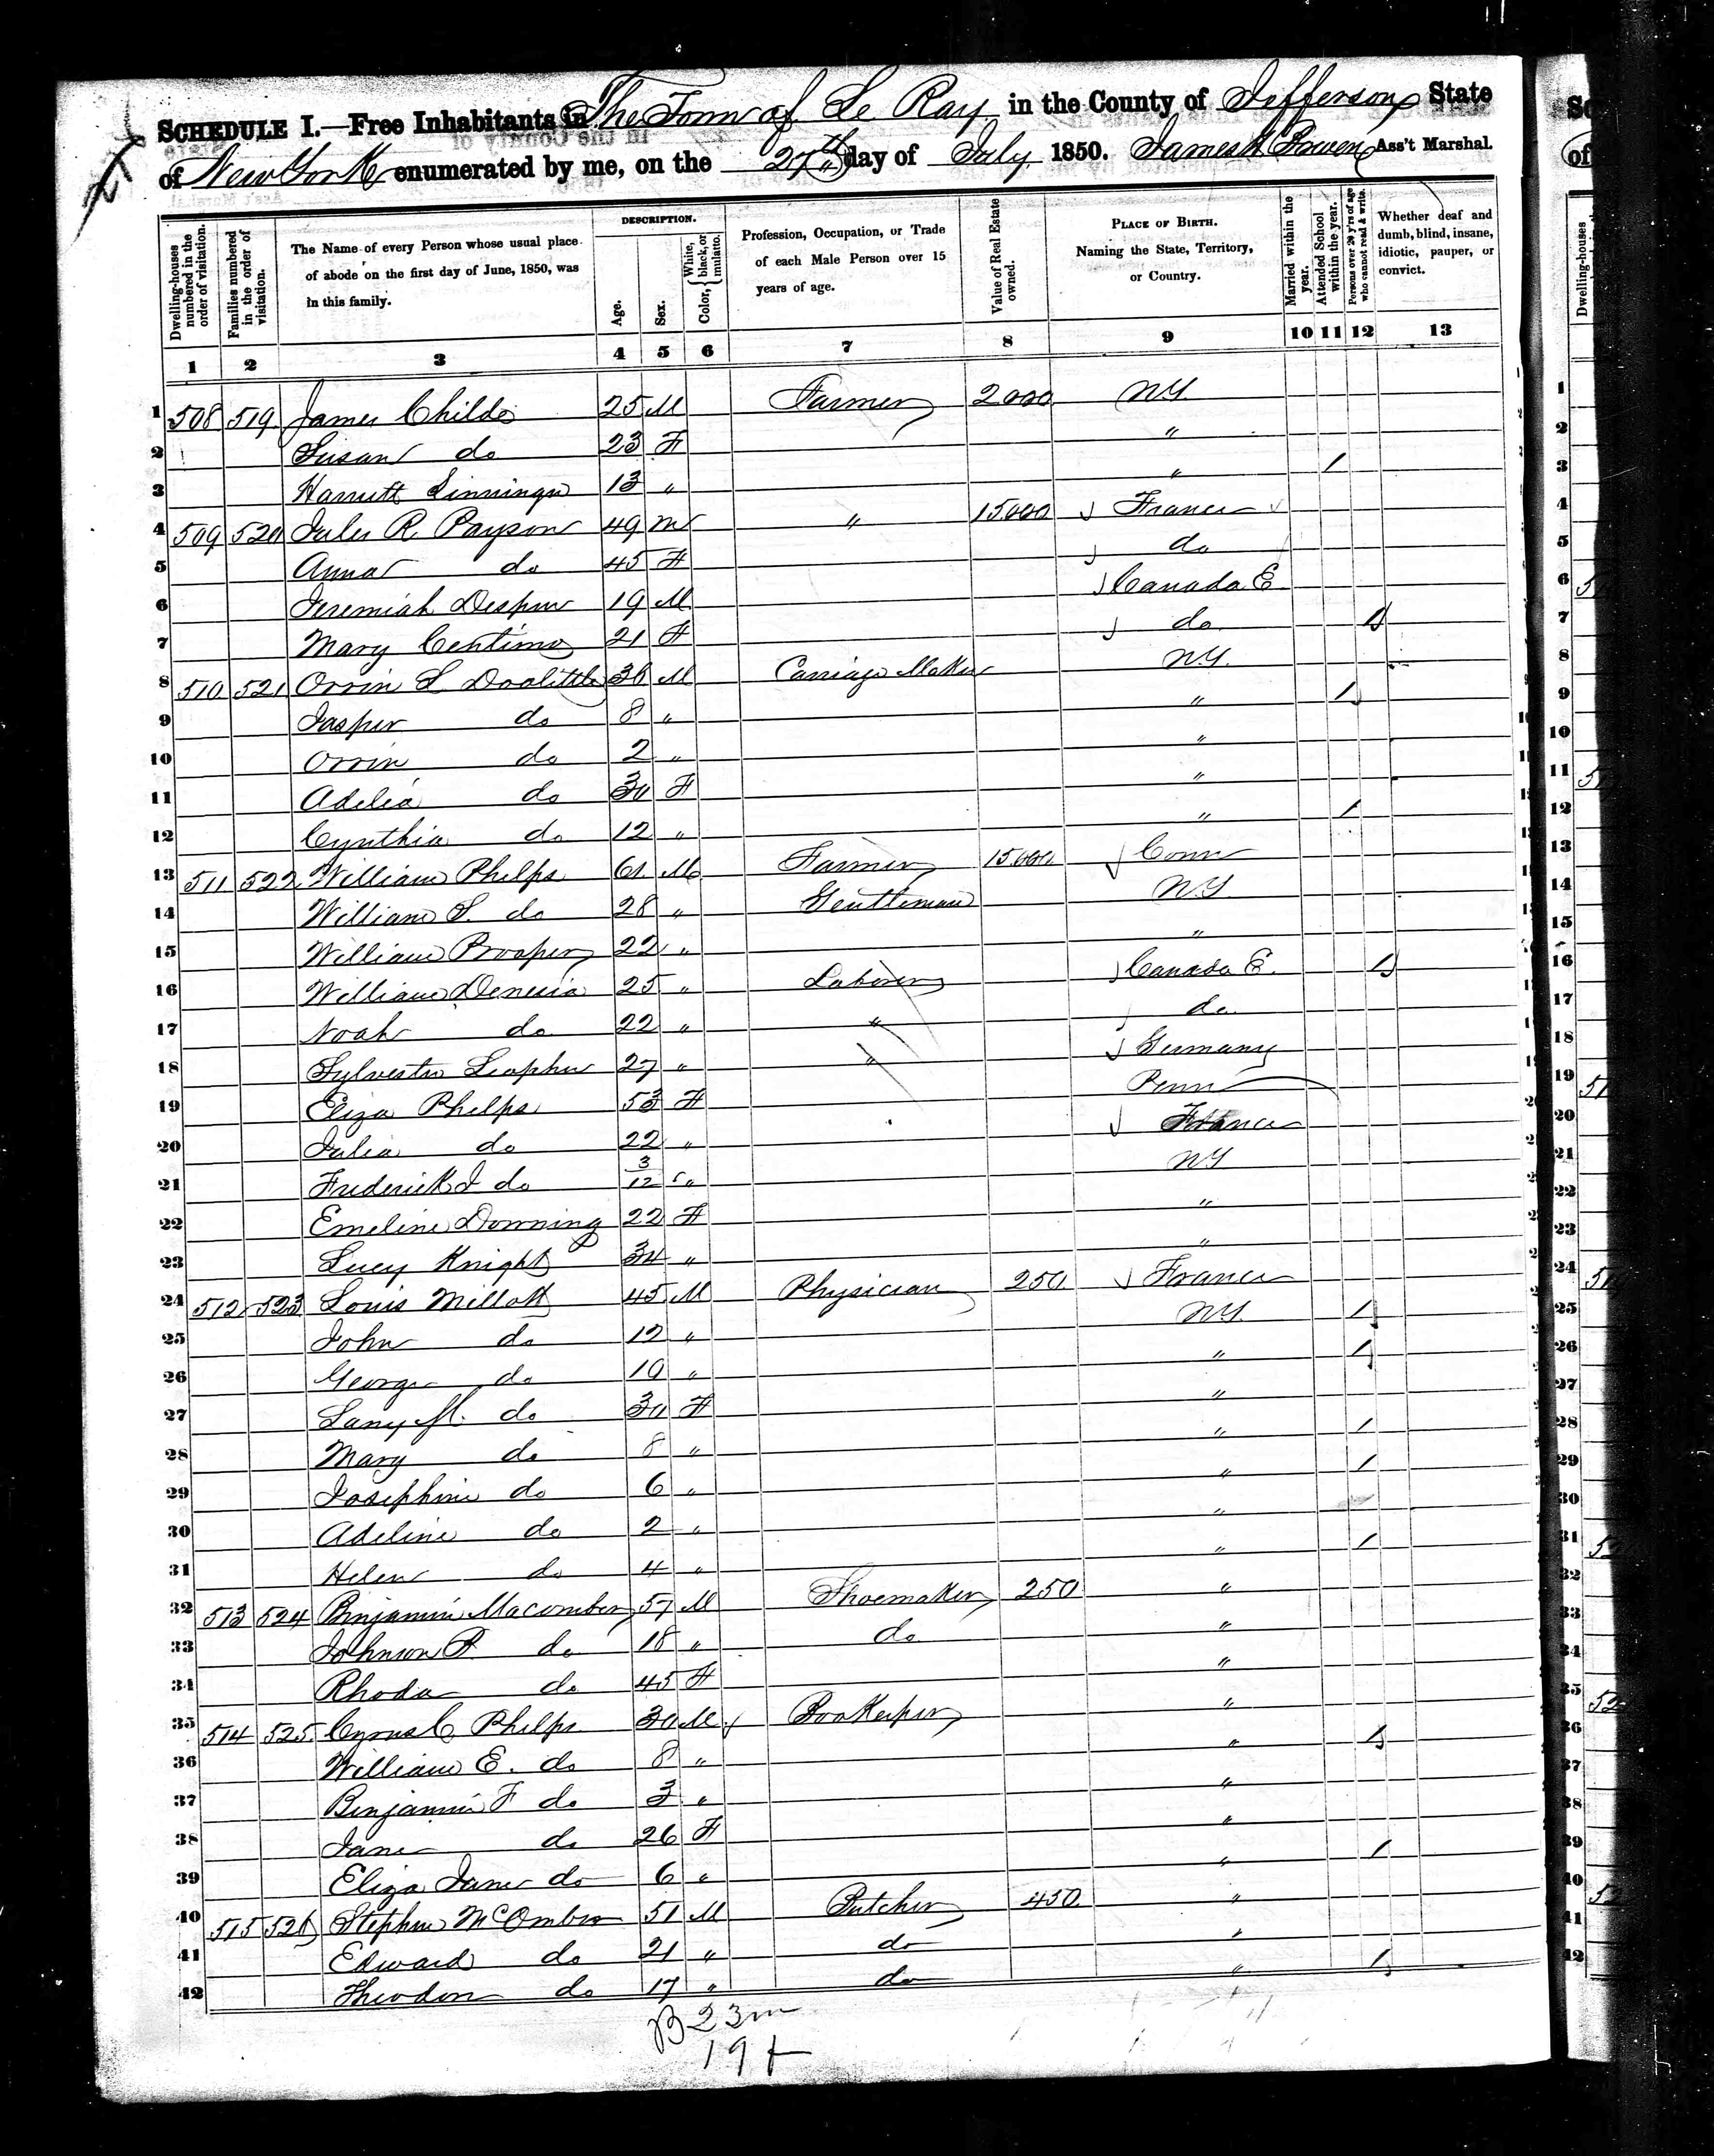 SCHEDULE I.—Free Inhabitants in The Town of Le Ray in the County of Jefferson State
of New York enumerated by me, on the 27th day of July 1850. James Ass't Marshal.
Dwelling-houses numbered in the order of visitation.
Families numbered in the order of visitation.
The Name of every Person whose usual place of abode on the first day of June, 1850, was in this family.
DESCRIPTION.
Age.
Sex.
Color, { White, black, or mulatto.
Profession, Occupation, or Trade of each Male Person over 15 years of age.
Value of Real Estate owned.
PLACE OF BIRTH. Naming the State, Territory, or Country.
Married within the year.
Attended School within the year.
Persons over 20 y'rs of age who cannot read & write.
Whether deaf and dumb, blind, insane, idiotic, pauper, or convict.
1 2 3 4 5 6 7 8 9 10 11 12 13
1 508 519 James Childs 25 M Farmer 2000 NY
2 Susan do 23 F "
3 Harriett 13 " " /
4 509 520 Jules R. Payson 49 M " 15000 France
5 Anna do 45 F do
6 Jeremiah 19 M Canada E
7 Mary 21 F do /
8 510 521 Orrin S Doolittle 36 M Carriage Maker N.Y.
9 Jasper do 8 " " /
10 Orrin do 2 " "
11 Adelia do 30 F "
12 Cynthia do 12 " " /
13 511 522 William Phelps 61 M Farmer 15000 Conn
14 William S. do 28 " Gentleman N.Y.
15 William Prosper 22 " "
16 William Denesia 25 " Laborer Canada E. /
17 Noah do 22 " " do
18 Sylvester 27 " " Germany
19 Eliza Phelps 53 F Penn
20 Julia do 22 " France
21 Frederick J do 3/12 " NY
22 Emeline Downing 22 F "
23 Lucy Knight 34 " "
24 512 523 Louis Millott 45 M Physician 250 France
25 John do 12 " N.Y. /
26 George do 10 " " /
27 Lany M. do 30 F "
28 Mary do 8 " " /
29 Josephine do 6 " " /
30 Adeline do 2 " "
31 Helen do 4 " " /
32 513 524 Benjamin Macomber 57 M Shoemaker 250 "
33 Johnson P. do 18 " do "
34 Rhoda do 45 F "
35 514 525 Cyrus C Phelps 30 M Bookeeper "
36 William E. do 8 " " /
37 Benjamin F do 3 " "
38 Jane do 26 F "
39 Eliza Jane do 6 " " /
40 515 526 Stephen McOmber 51 M Butcher 450 "
41 Edward do 21 " do "
42 Theodore do 17 " do " /
B 23m
19 f